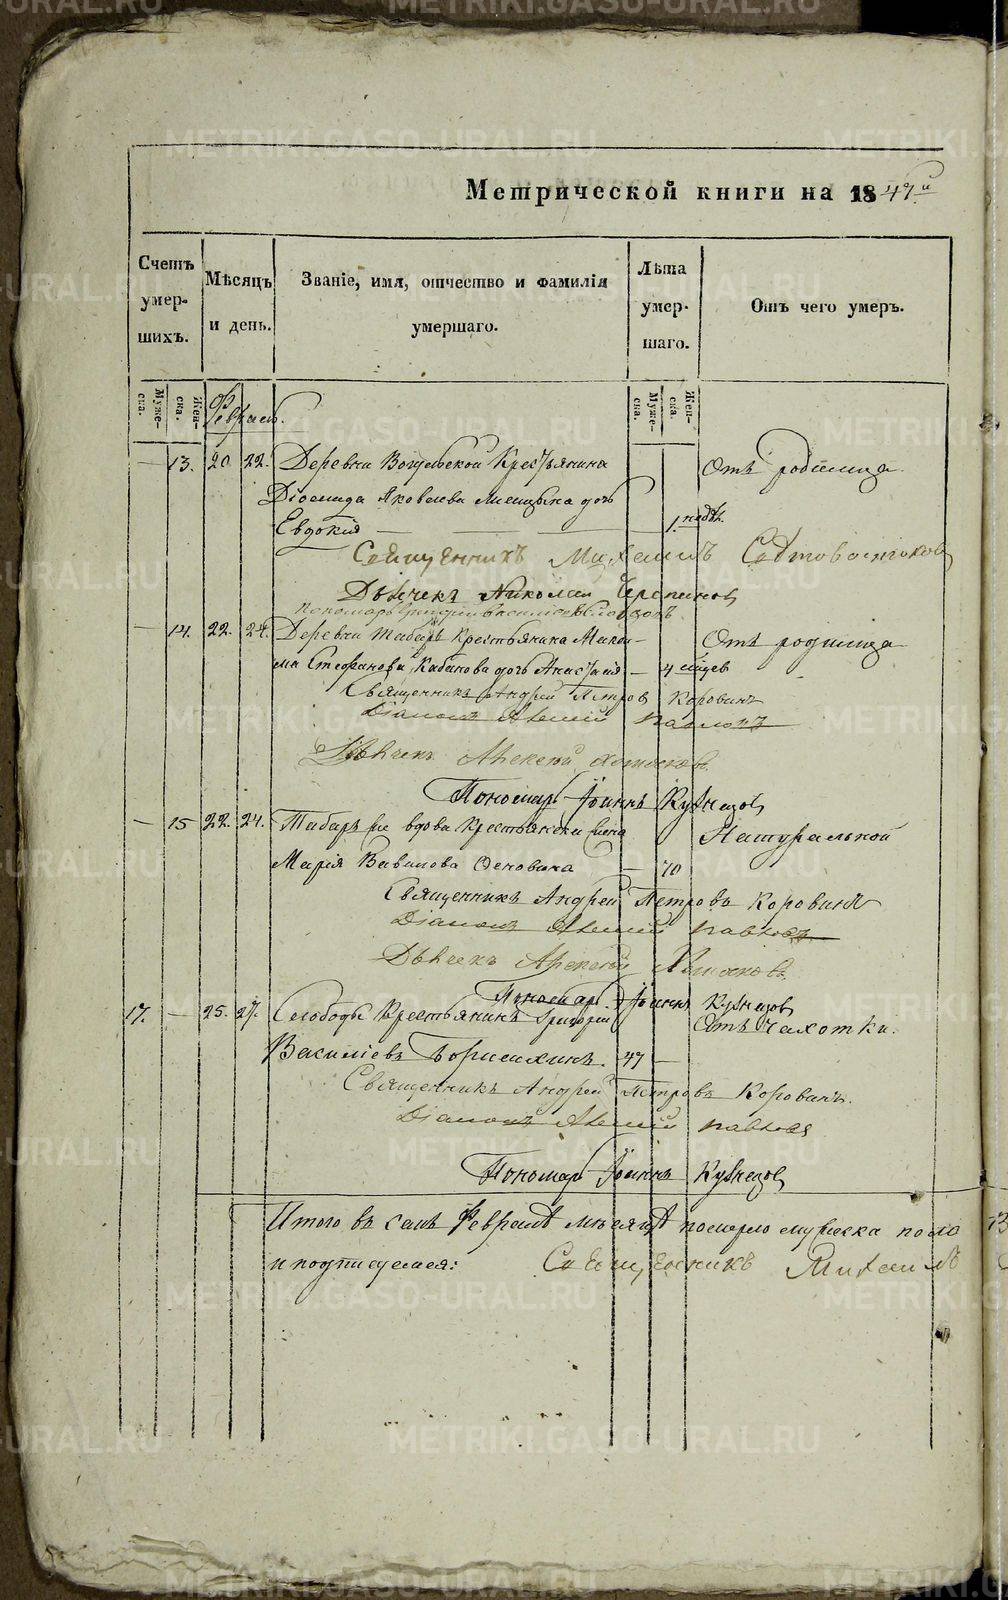 Метрической книги на 1847й
Счетъ умершихъ.
Мѣсяцъ и день.
Званіе, имя, отчество и фамилія умершаго.
Лѣта умершаго.
Отъ чего умеръ.
Муже-ска.
Жен-ска.
Муже-ска.
Жен-ска.
Февраль.
— 13. 20 22. Деревни Крестьянина Отъ родимца
Діомида Яковлева дочь
Евдокія — 1. недѣл.
Священникъ Михаилъ
Дьячекъ Николай
Пономарь
— 14. 22. 24. Деревни Табаръ Крестьянина Макси- Отъ родимца
ма Стефанова Кабакова дочь Анастасія — 4 мѣсев
Священникъ Андрей Петровъ Коровинъ
Діаконъ Павловъ
Дьячекъ Алексѣй
Пономарь Іоаннъ Кузнецовъ
— 15 22. 24. Табаръ же вдова Крестьянская жена Натуральной
Марія Вавилова — 70
Священникъ Андрей Петровъ Коровинъ
Діаконъ Павловъ
Дьячекъ Алексѣй
Пономарь Іоаннъ Кузнецовъ
17. — 25. 27. Слободы Крестьянинъ Григорій Отъ Чахотки.
Василіевъ Борисихинъ. 47 —
Священникъ Андрей Петровъ Коровинъ.
Діаконъ Павловъ
Пономарь Іоаннъ Кузнецовъ
Итого въ семъ Февралѣ мѣсяцѣ померло мужеска поло
и подписуемся: Священникъ Михаилъ
METRIKI.GASO-URAL.RU